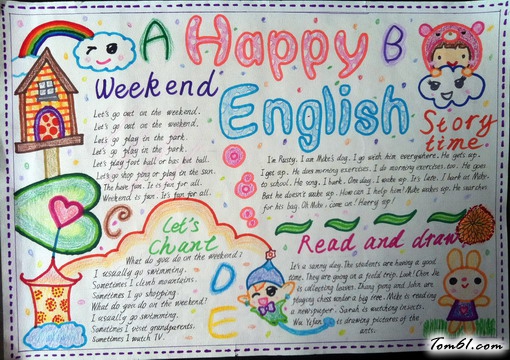 A Happy B
English
Weekend
Let's go out on the weekend.
Let's go out on the weekend.
Let's go play in the park.
Let's go play in the park.
Let's play foot ball or bas ket ball.
Let's go shop ping or play on the sun.
The have fun. It is fun for all.
Weekend is fun. It's fun for all.
C
Story
time
I'm Rusty. I am Mike's dog. I go with him everywhere. He gets up.
I get up. He does morning exercises. I do morning exercises too. He goes
to school. He sing. I bark. One day. I wake up. It's late. I bark at Mike.
But he doesn't wake up. How can I help him? Mike wakes up. He searches
for his bag. Oh Mike. come on! Hurry up!
Let's
Chant
What do you do on the weekend?
I usually go swimming.
Sometimes I climb mountains.
Sometimes I go shopping.
What do you do on the weekend!
I usually go swimming.
Sometimes I visit grandparents.
Sometimes I watch TV.
D
E
Read and draw
It's a sunny day. The students are having a good
time. They are on a feild trip. Look! Chen Jie
is collecting leaves. Zhang peng and John are
playing chess under a big tree. Mike is reading
a newspaper. Sarah is watching insects.
Wu Yifan is drawing pictures of the
ants.
Tom61.com